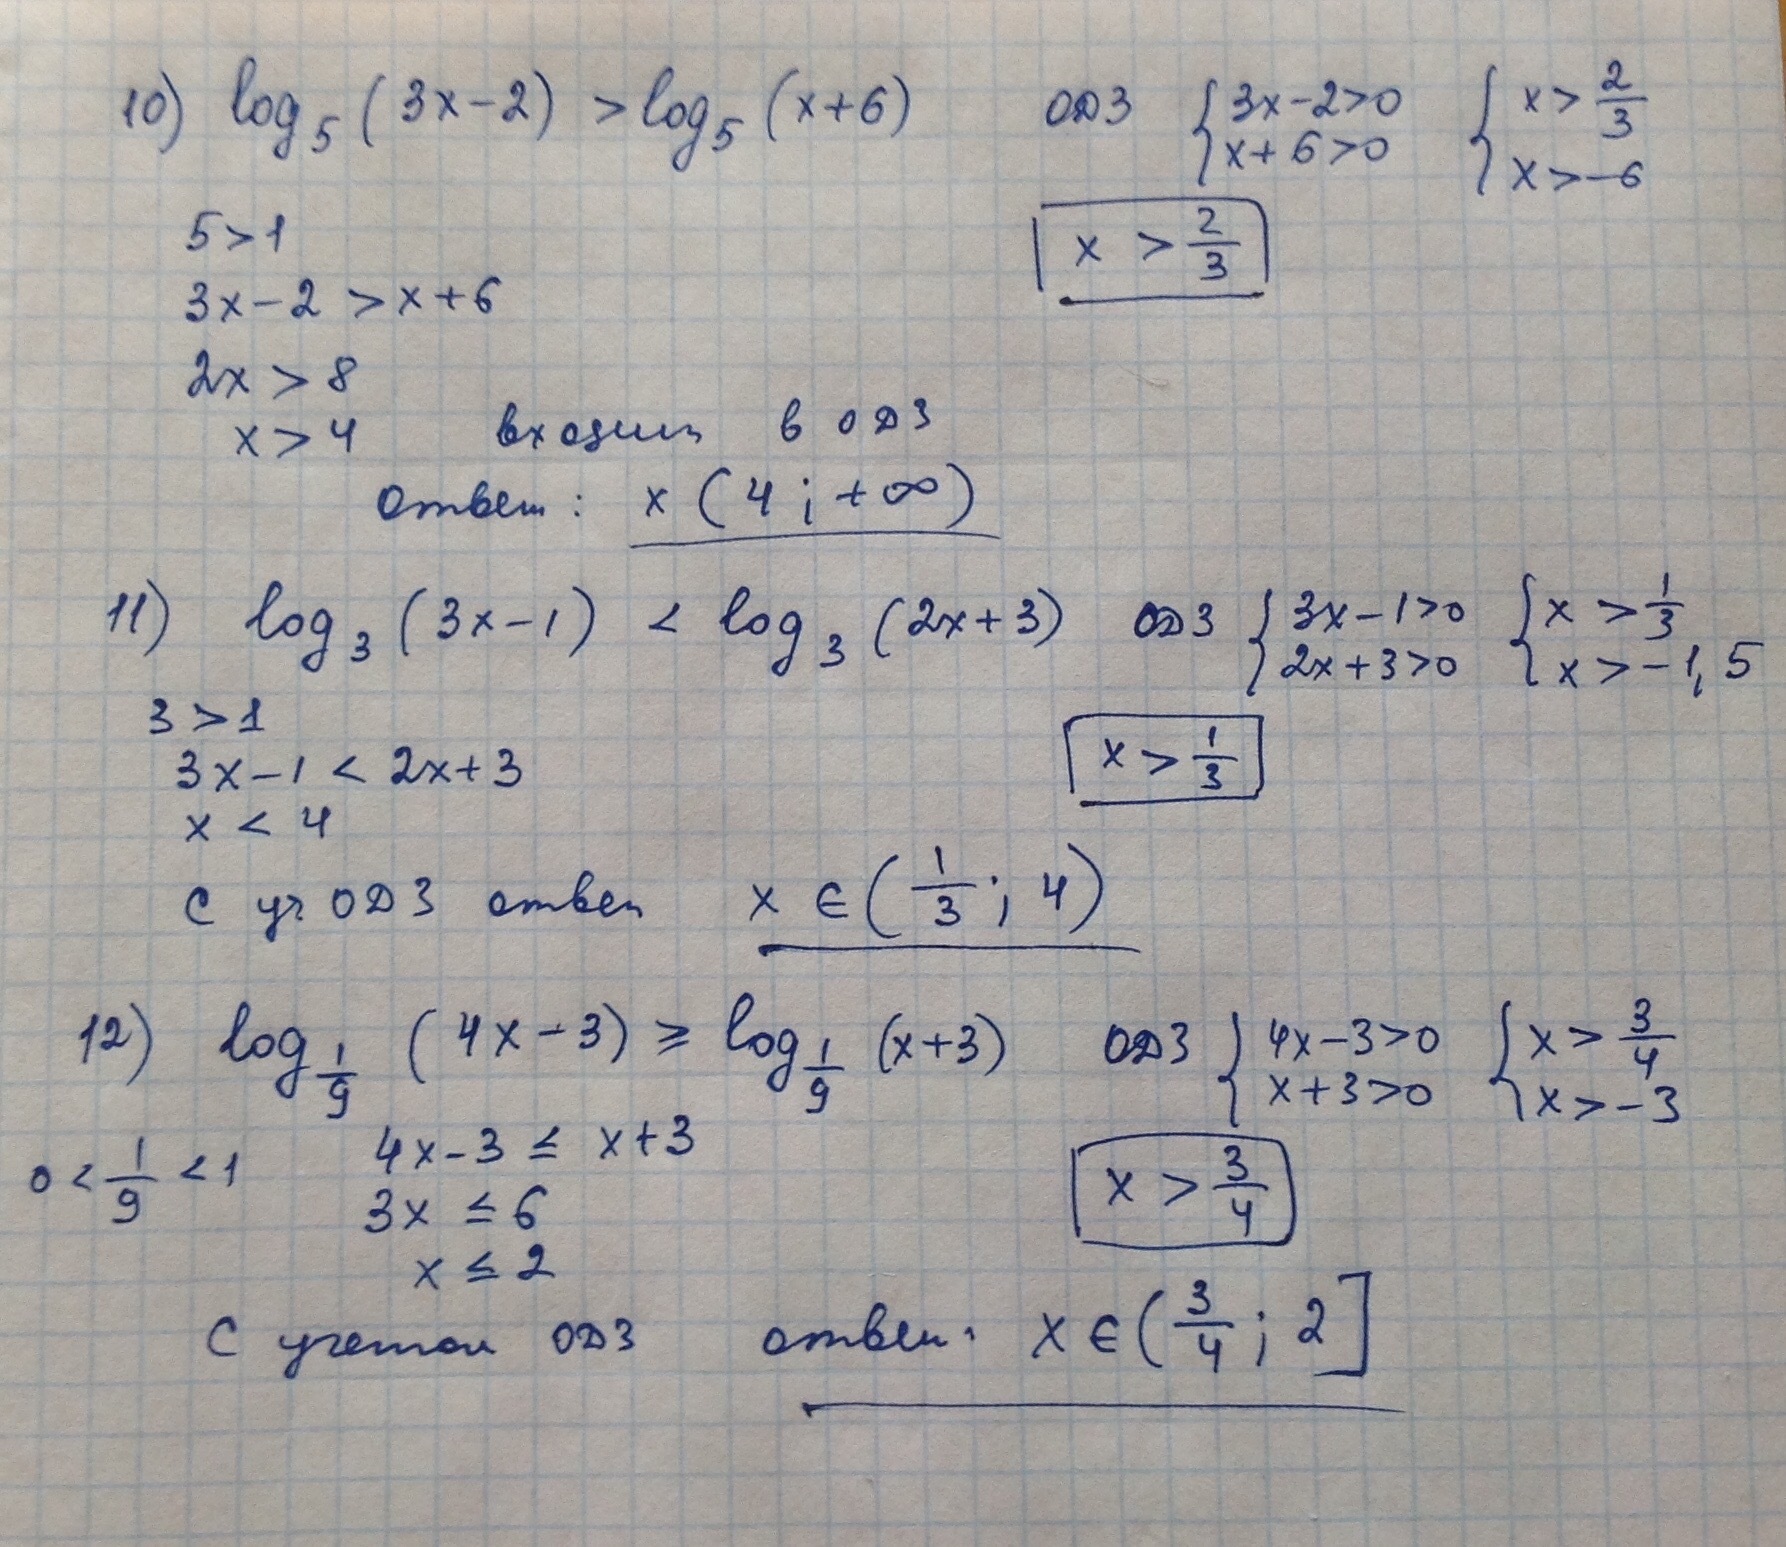 10) log₅(3x-2) > log₅(x+6) ОДЗ { 3x-2>0 { x > 2/3
x+6>0 x > -6
5>1
x > 2/3
3x-2 > x+6
2x > 8
x > 4 входит в ОДЗ
ответ: x (4; +∞)
11) log₃(3x-1) < log₃(2x+3) ОДЗ { 3x-1>0 { x > 1/3
2x+3>0 x > -1,5
3>1
x > 1/3
3x-1 < 2x+3
x < 4
С уч ОДЗ ответ x ∈ (1/3; 4)
12) log_{1/9}(4x-3) ≥ log_{1/9}(x+3) ОДЗ { 4x-3>0 { x > 3/4
x+3>0 x > -3
0 < 1/9 < 1 4x-3 ≤ x+3
x > 3/4
3x ≤ 6
x ≤ 2
С учетом ОДЗ ответ: x ∈ (3/4; 2]